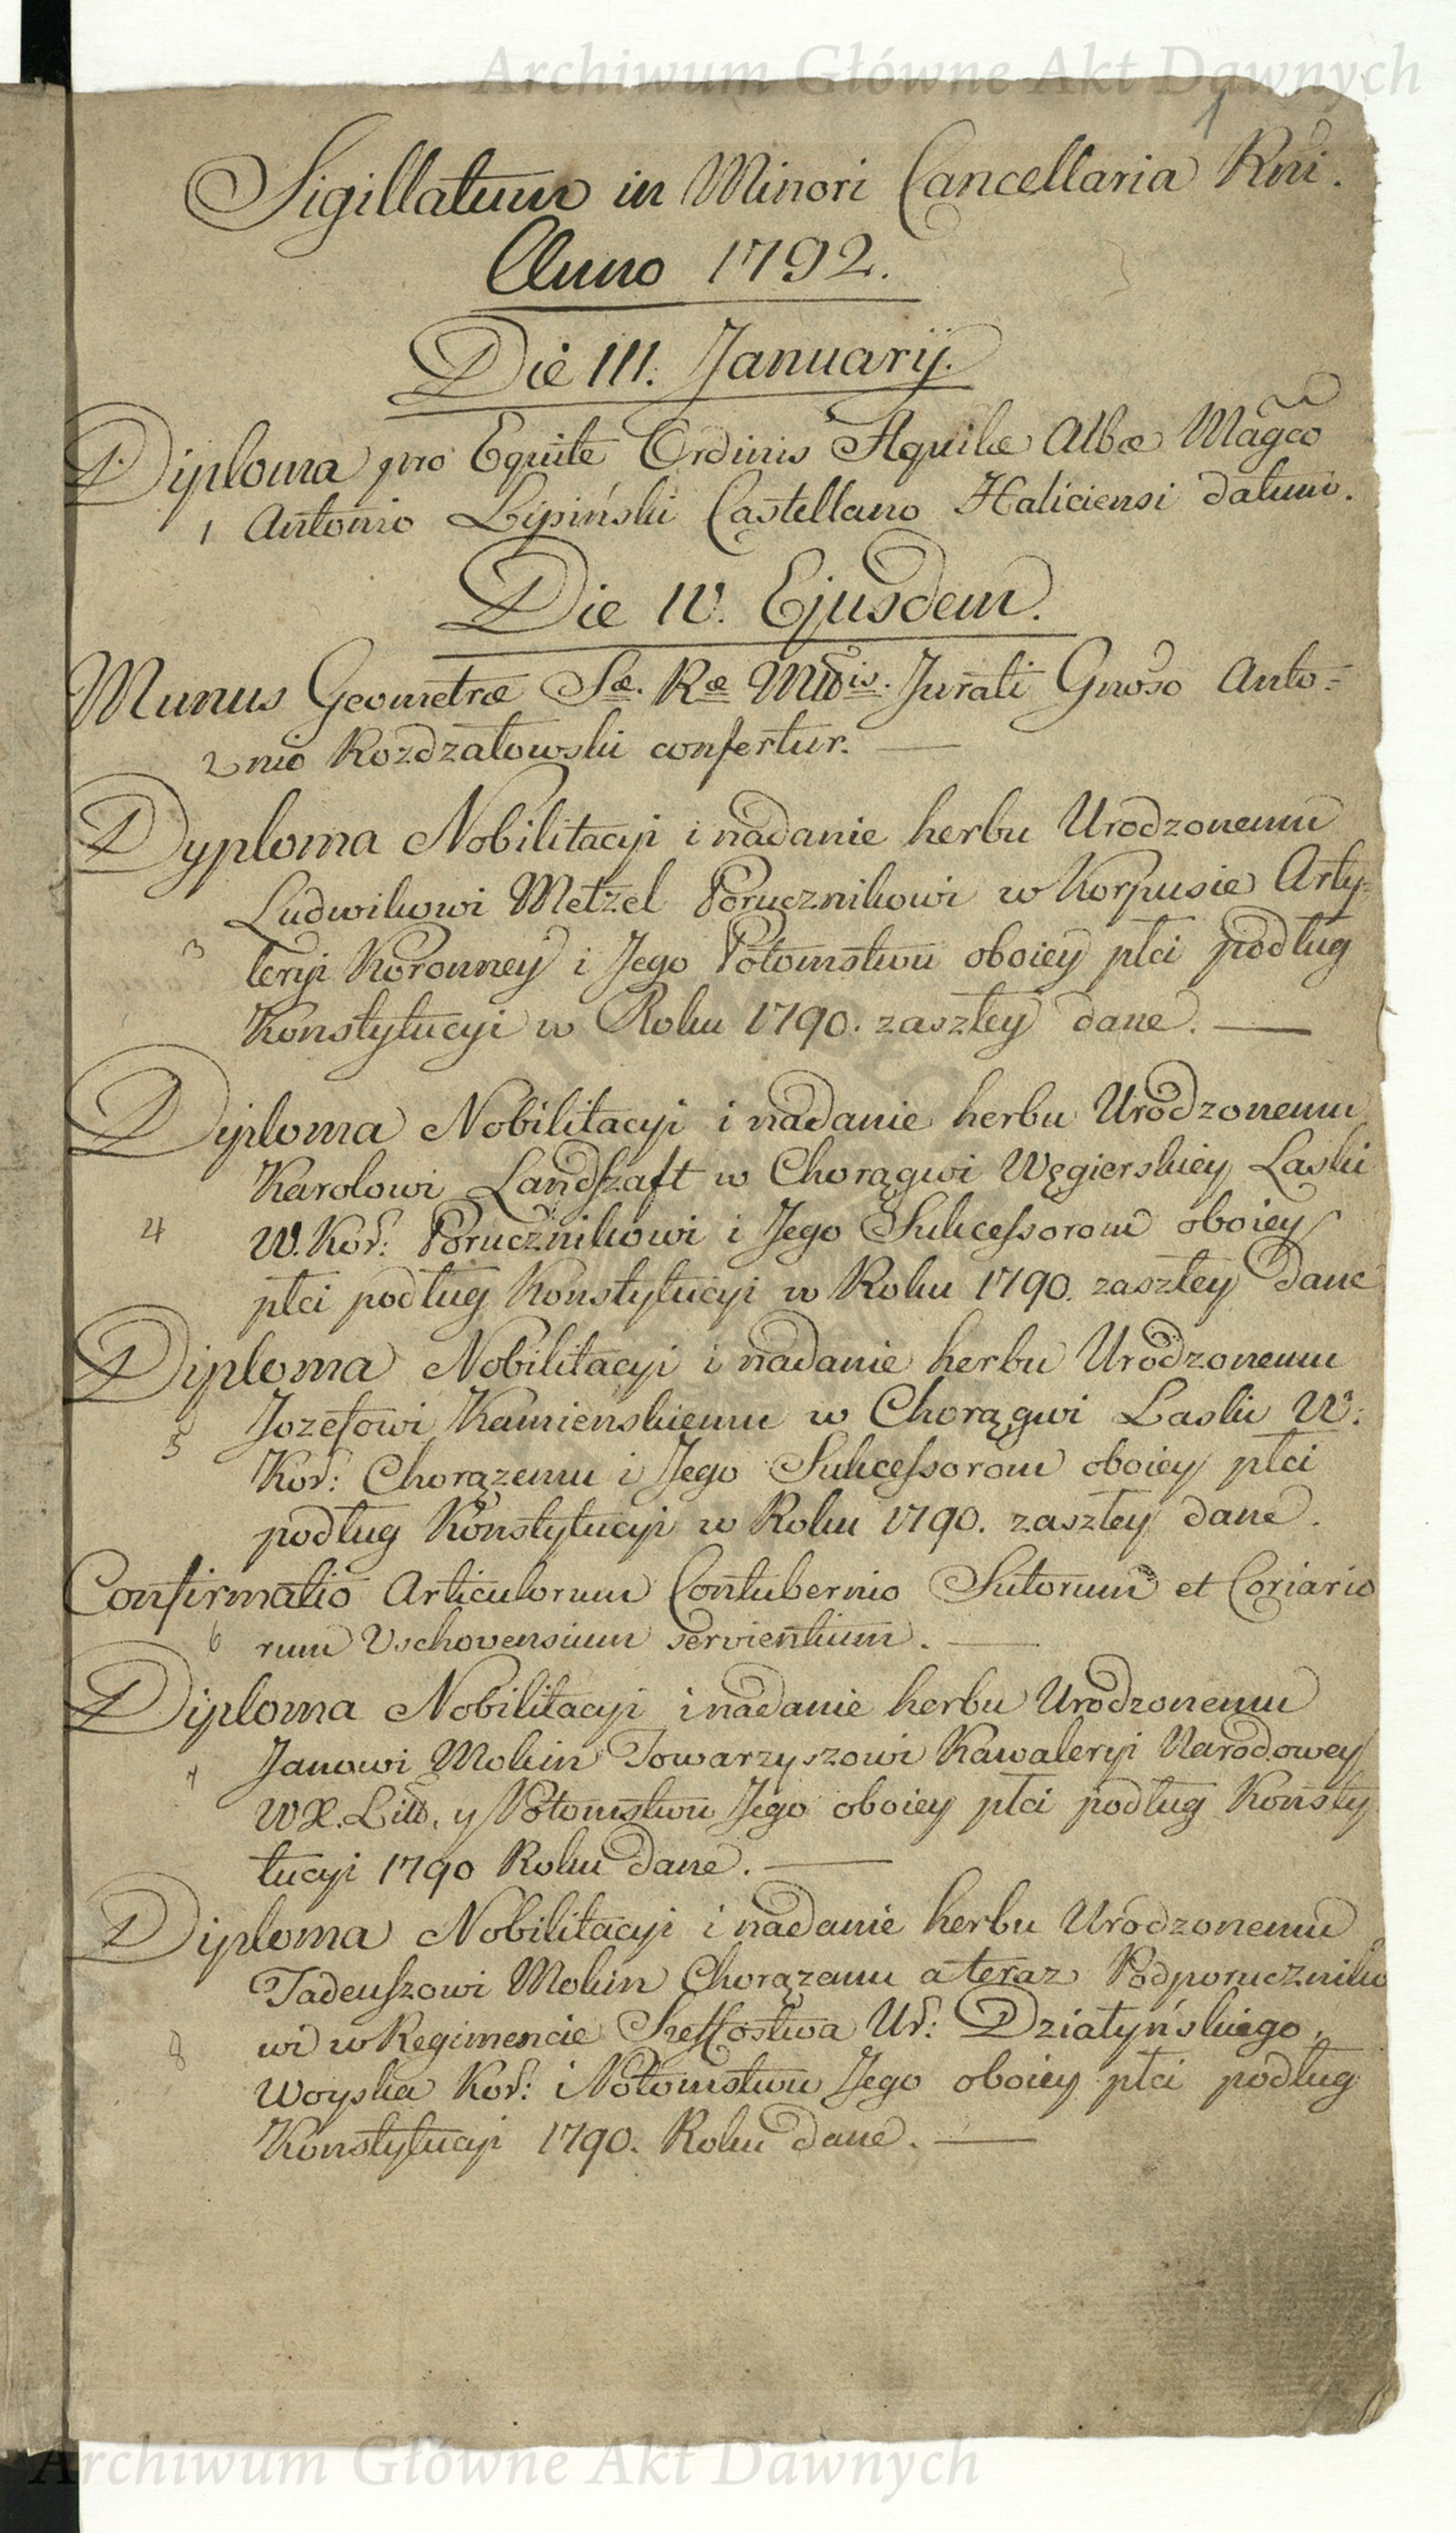 Archiwum Główne Akt Dawnych
1
Sigillatum in Minori Cancellaria Rni.
Anno 1792.
Die III. Januarij.
Diploma pro Equite Ordinis Aquilæ Albæ Magco
1 Antonio Lipiński Castellano Haliciensi datum.
Die IV. Ejusdem.
Munus Geometræ Sæ. Ræ Mttis. Jurati Gnoso Anto=
2 nio Rozdzałowski confertur. —
Dyploma Nobilitacyi i nadanie herbu Urodzonemu
Ludwikowi Metzel Porucznikowi w Korpusie Arty=
3 leryi Koronney i Jego Potomstwu oboiey płci podług
Konstytucyi w Roku 1790. zaszłey dane. —
Diploma Nobilitacyi i nadanie herbu Urodzonemu
Karolowi Landszaft w Chorągwi Węgierskiey Laski
4 W. Kor: Porucznikowi i Jego Sukcessorom oboiey
płci podług Konstytucyi w Roku 1790. zaszłey dane
Diploma Nobilitacyi i nadanie herbu Urodzonemu
5 Jozefowi Kamienskiemu w Chorągwi Laski W:
Kor: Chorązemu i Jego Sukcessorom oboiey płci
podług Konstytucyi w Roku 1790. zaszłey dane.
Confirmatio Articulorum Contubernio Sutorum et Coriario
6 rum Vschovensium servientium. —
Diploma Nobilitacyi i nadanie herbu Urodzonemu
7 Janowi Mokin Towarzyszowi Kawaleryi Narodowey
WX. Litt. y Potomstwu Jego oboiey płci podług Konsty
tucyi 1790 Roku dane. —
Diploma Nobilitacyi i nadanie herbu Urodzonemu
Tadeuszowi Mokin Chorązemu a teraz Podporuczniko
8 wi w Regimencie Szeffostwa Ur: Działyńskiego,
Woyska Kor: i Potomstwu Jego oboiey płci podług
Konstytucyi 1790. Roku dane. —
Archiwum Główne Akt Dawnych